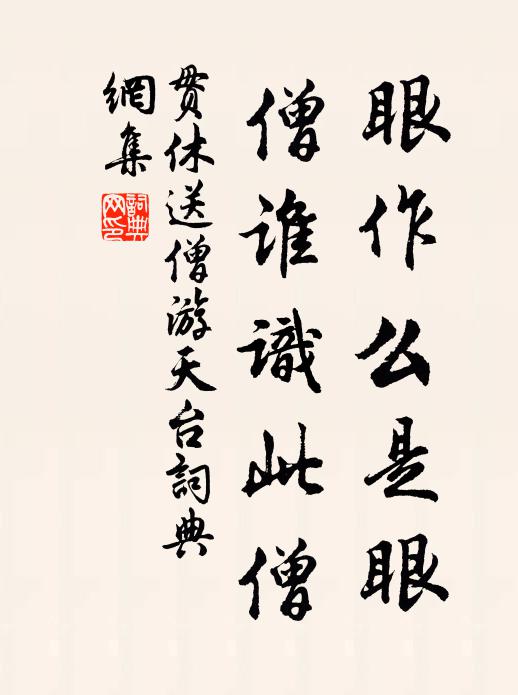 眼作么是眼
僧誰識此僧
贯休送僧游天台詞典
網集
詞典
网印